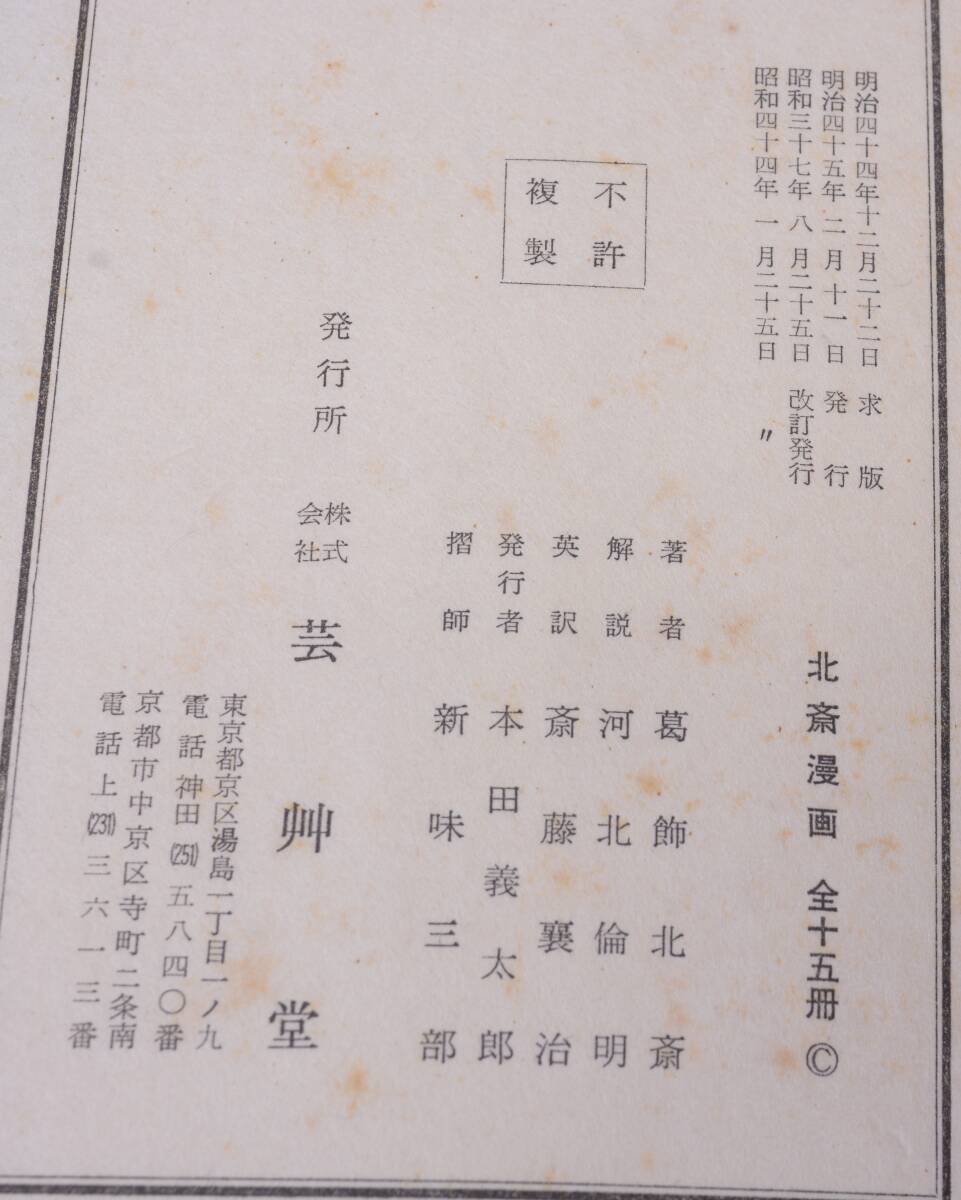 明治四十四年十二月二十二日 求版
明治四十五年 二 月 十一 日 発行
昭和三十七年 八 月二十五日 改訂発行
昭和四十四年 一 月二十五日 〃
不許
複製
北斎漫画 全十五冊 ©
著者 葛飾北斎
解説 河北倫明
英訳 斎藤襄治
発行者 本田義太郎
摺師 新味三部
発行所 株式会社 芸艸堂
東京都京区湯島一丁目一ノ九
電話神田(251)五八四〇番
京都市中京区寺町二条南
電話上(231)三六一三番